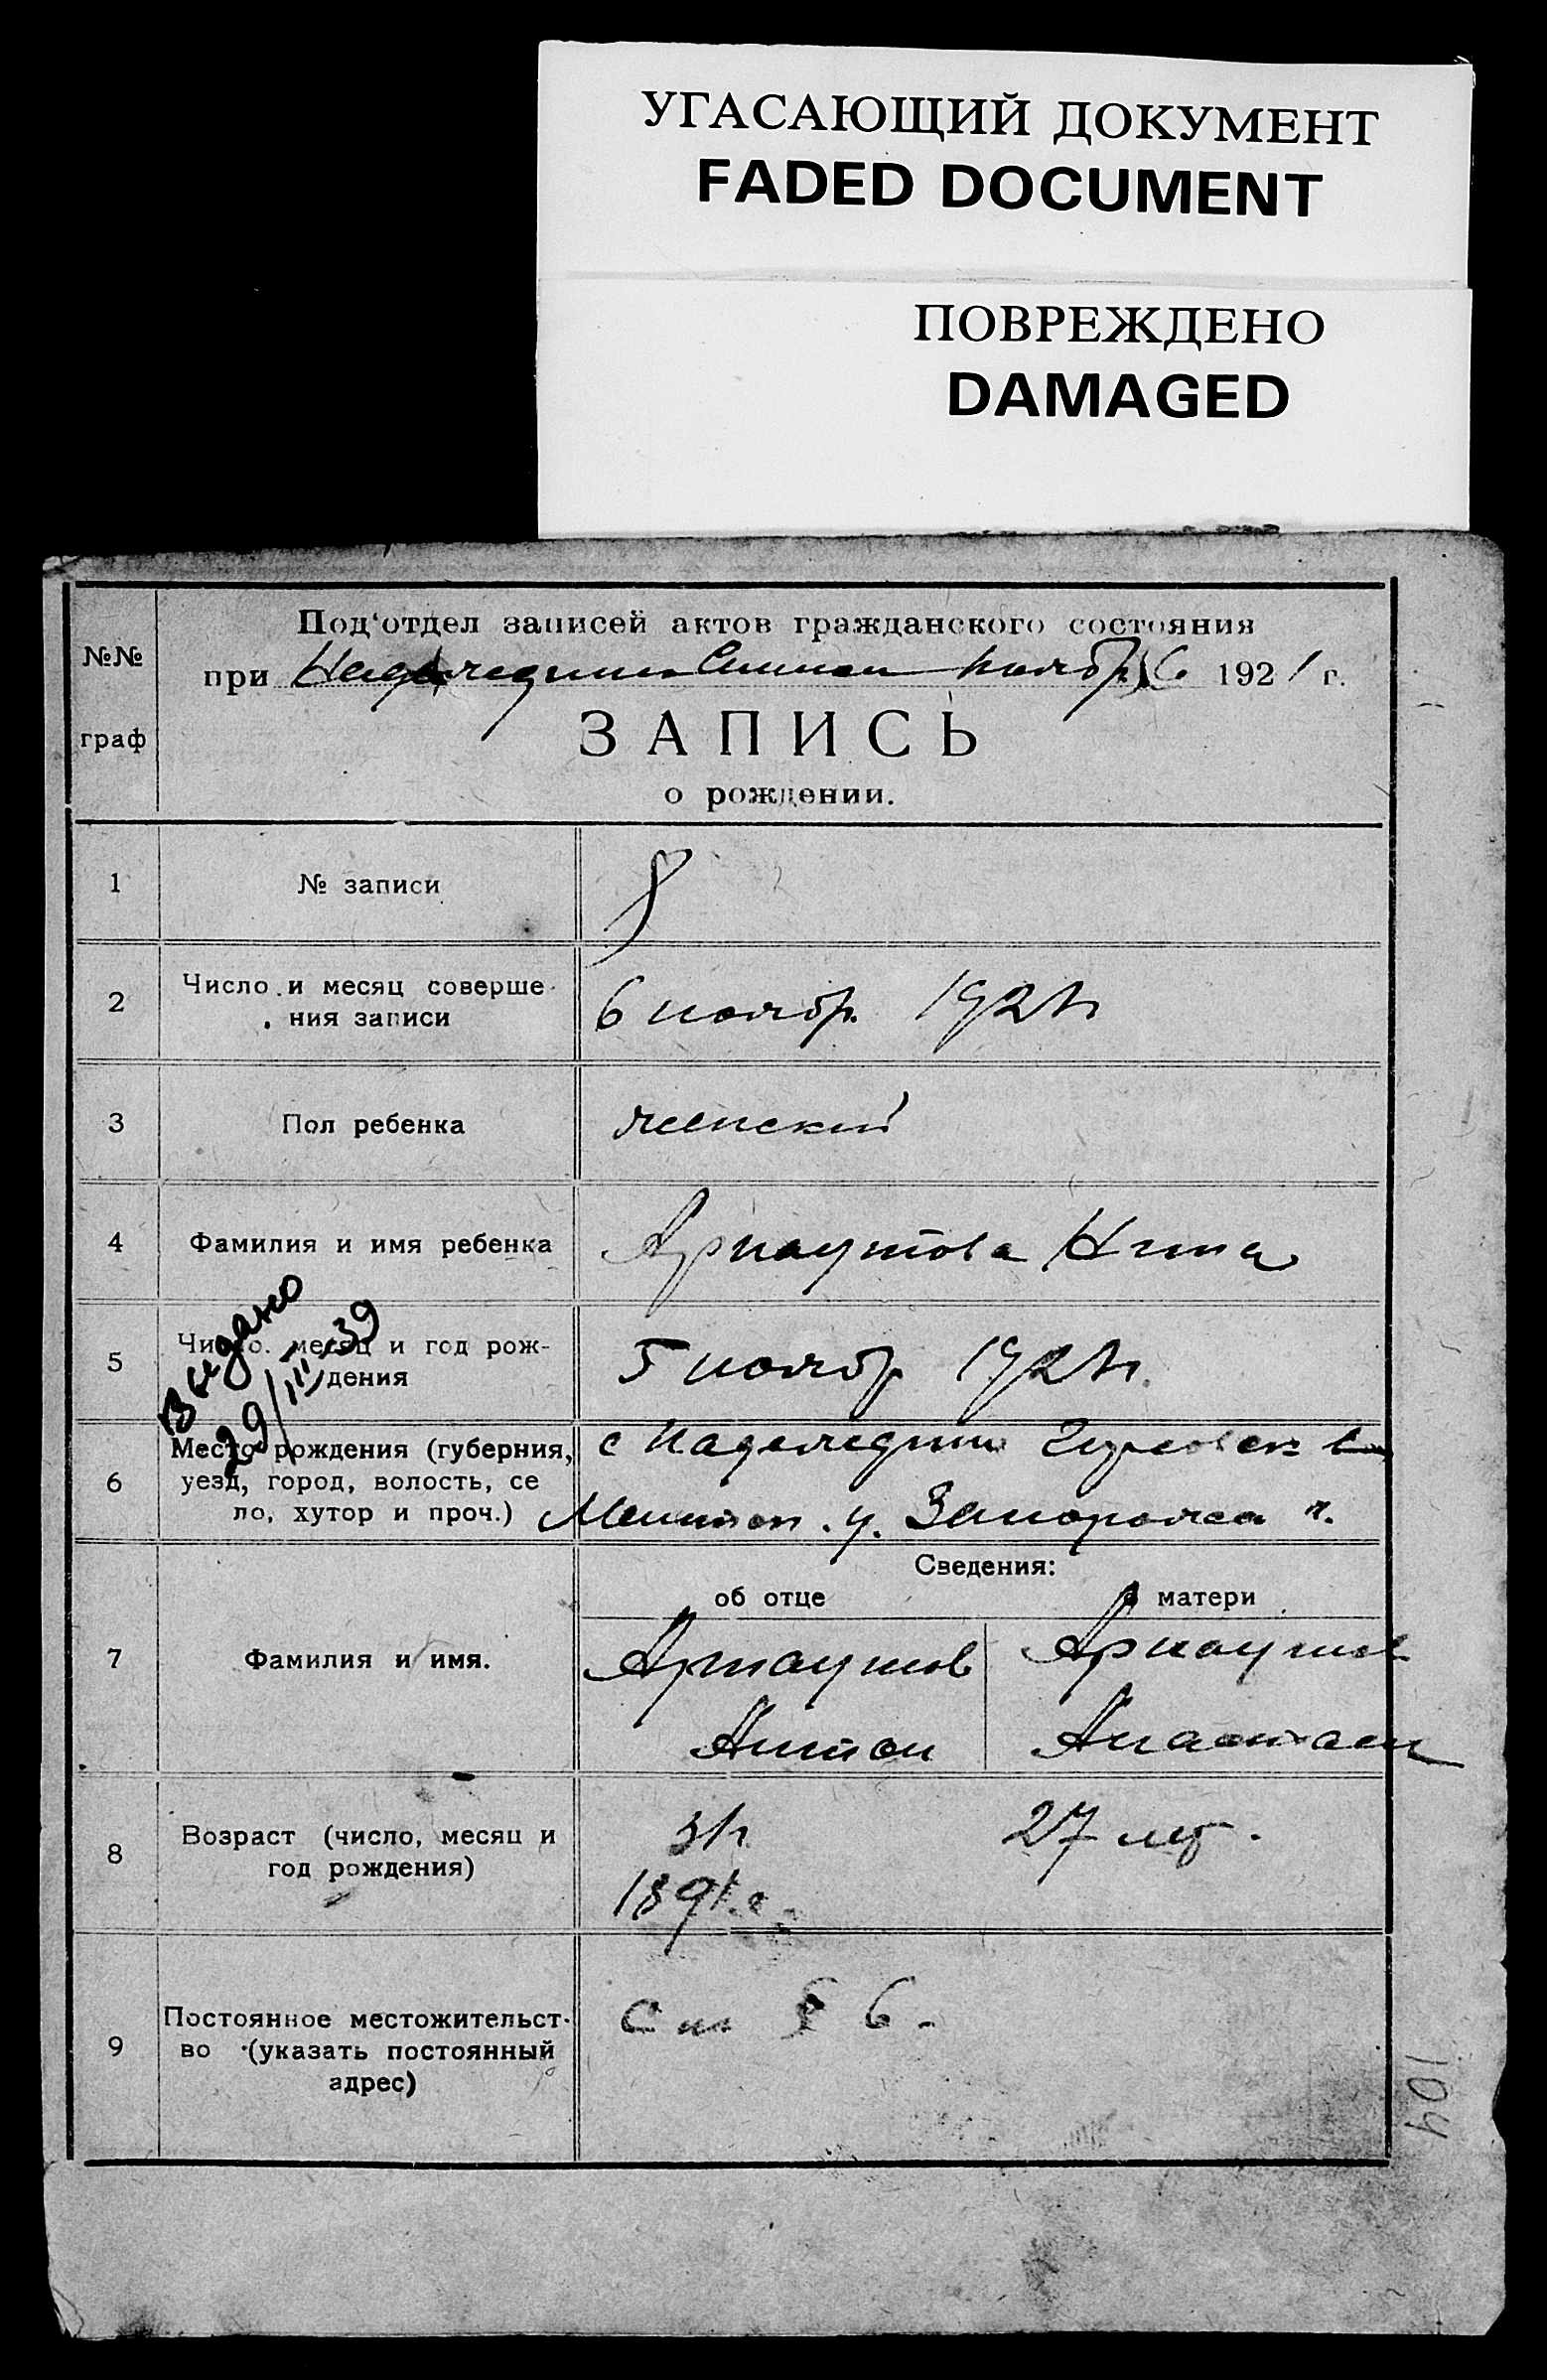 УГАСАЮЩИЙ ДОКУМЕНТ
FADED DOCUMENT
ПОВРЕЖДЕНО
DAMAGED
№№
граф
Под'отдел записей актов гражданского состояния
при ноябр. 6 1921 г.
ЗАПИСЬ
о рождении.
1 № записи 8
2 Число и месяц соверше-
ния записи 6 ноябр. 1921 г
3 Пол ребенка женский
4 Фамилия и имя ребенка Арнаутова Нина
5 Число. месяц и год рож-
дения 5 ноябр 1921 г.
Выдано
29/III 39
6 Место рождения (губерния, с
уезд, город, волость, се
ло, хутор и проч.) Мелитоп. у. Запорожск г.
Сведения:
об отце о матери
7 Фамилия и имя. Арнаутов Арнаутов
Антон Анастаси
8 Возраст (число, месяц и 31 г. 27 лет.
год рождения) 1891 г.
9 Постоянное местожительст-
во (указать постоянный
адрес) См § 6.
104